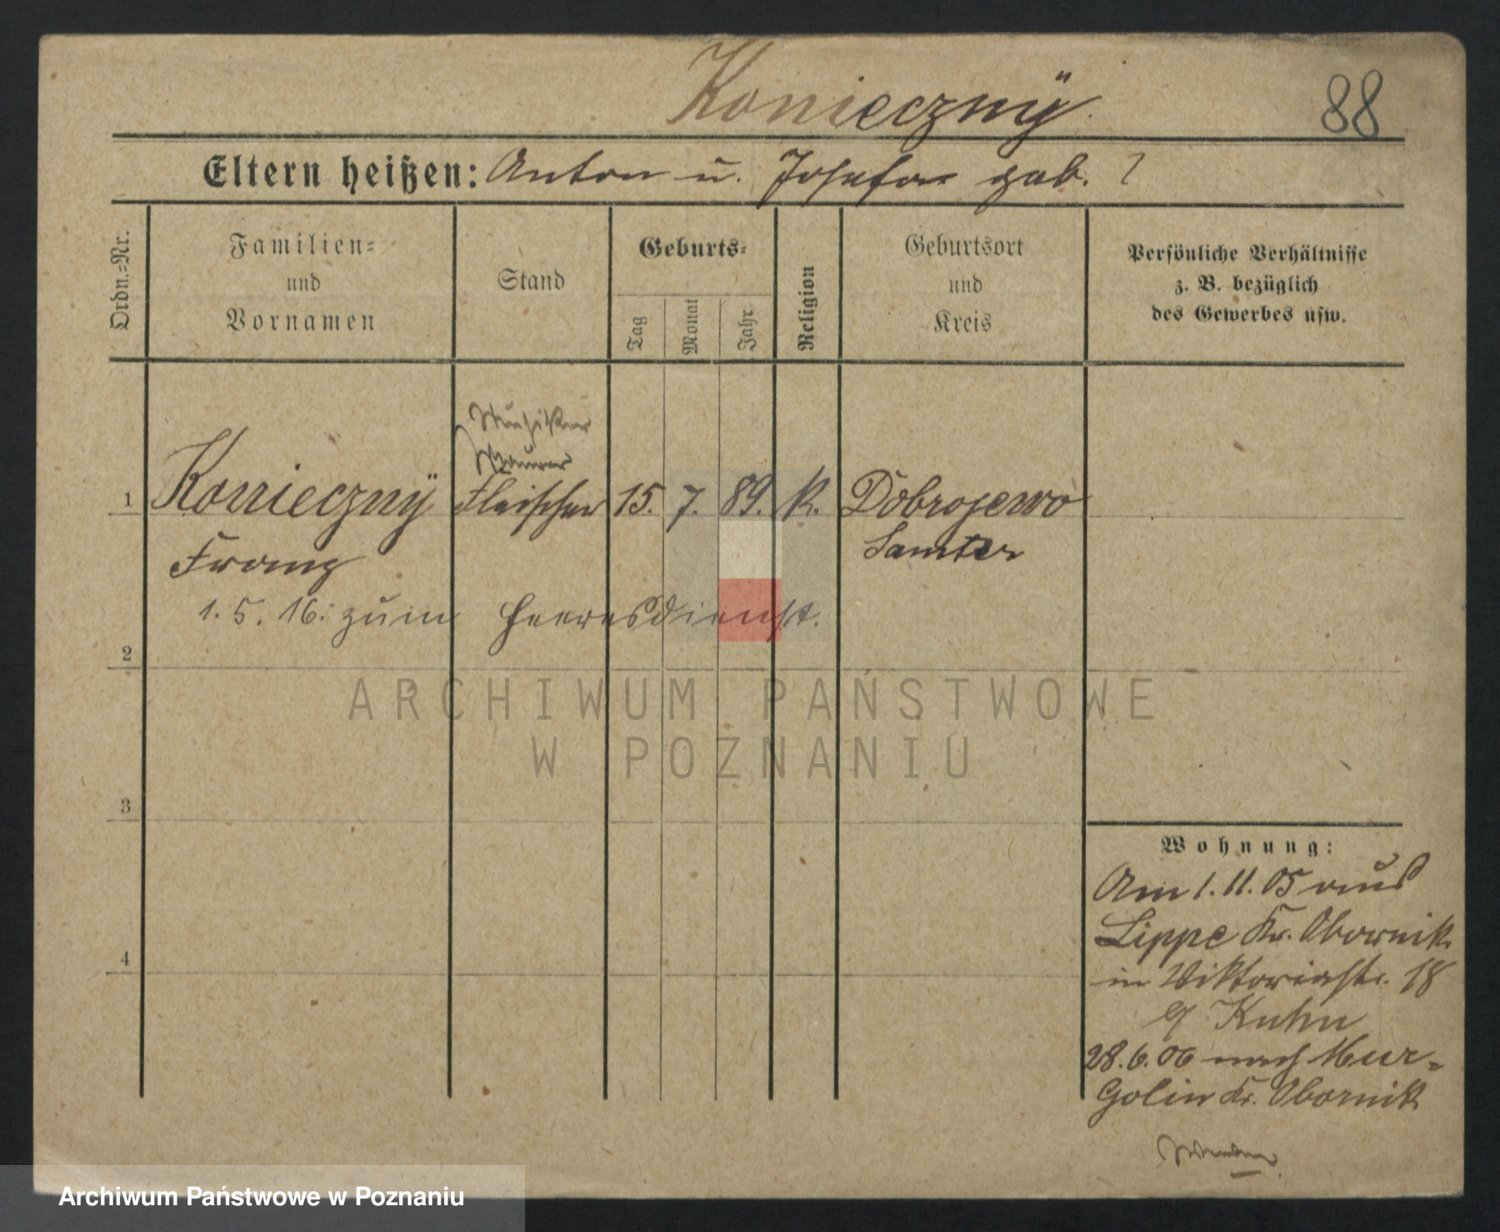 Koniecznÿ
88
Eltern heißen: Anton u. Josefa geb. ?
Ordn.-Nr.
Familien-
und
Vornamen
Stand
Geburts-
Tag
Monat
Jahr
Religion
Geburtsort
und
Kreis
Persönliche Verhältnisse
z. B. bezüglich
des Gewerbes usw.
Musiker
Maurer
1 Koniecznÿ Fleischer 15. 7. 89. k. Dobrojewo
Franz Samter
1. 5. 16. zum Heeresdienst.
2
ARCHIWUM PAŃSTWOWE
W POZNANIU
3
Wohnung:
Am 1. 11. 05 aus
Lippe Kr. Obornik
in Viktoriastr. 18
b/ Kuhn
28. 6. 06 nach Mur-
Golin Kr. Obornik
4
Wenden
Archiwum Państwowe w Poznaniu